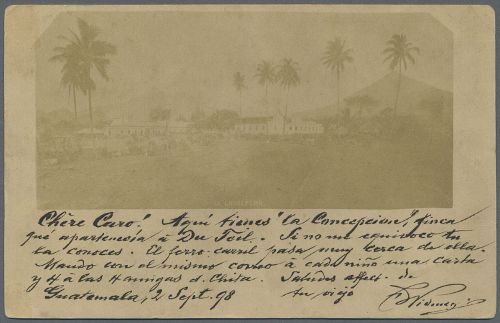 LA CONCEPCIÓN.
Chère Caro! Aquí tienes "la Concepcion", finca
qué apartenesia á Du Teil. Si no me equivoco tu
la conoces. El ferro-carril pasa muy cerca de ella.
Mando con el mismo correo á cada niño una carta
y 4 á las 4 amigas d. Chita. Saludes affect. de
Guatemala, 2 Sept. 98 tu viejo